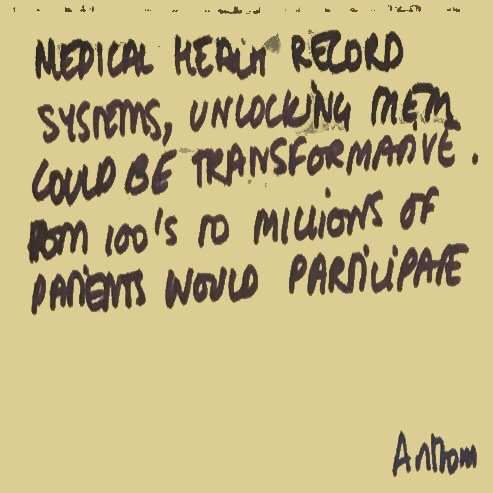 MEDICAL HEALTH RECORD
SYSTEMS, UNLOCKING THEM
COULD BE TRANSFORMATIVE.
FROM 100'S TO MILLIONS OF
PATIENTS WOULD PARTICIPATE
Anthony